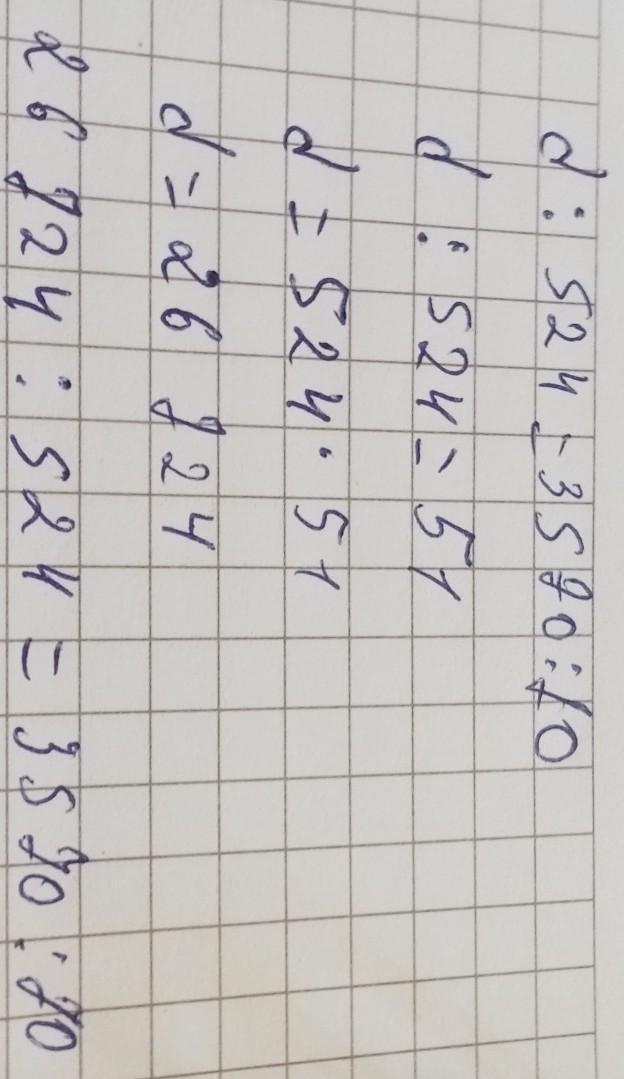 d : 524 = 3570 : 70
d : 524 = 51
d = 524 · 51
d = 26724
26724 : 524 = 3570 : 70